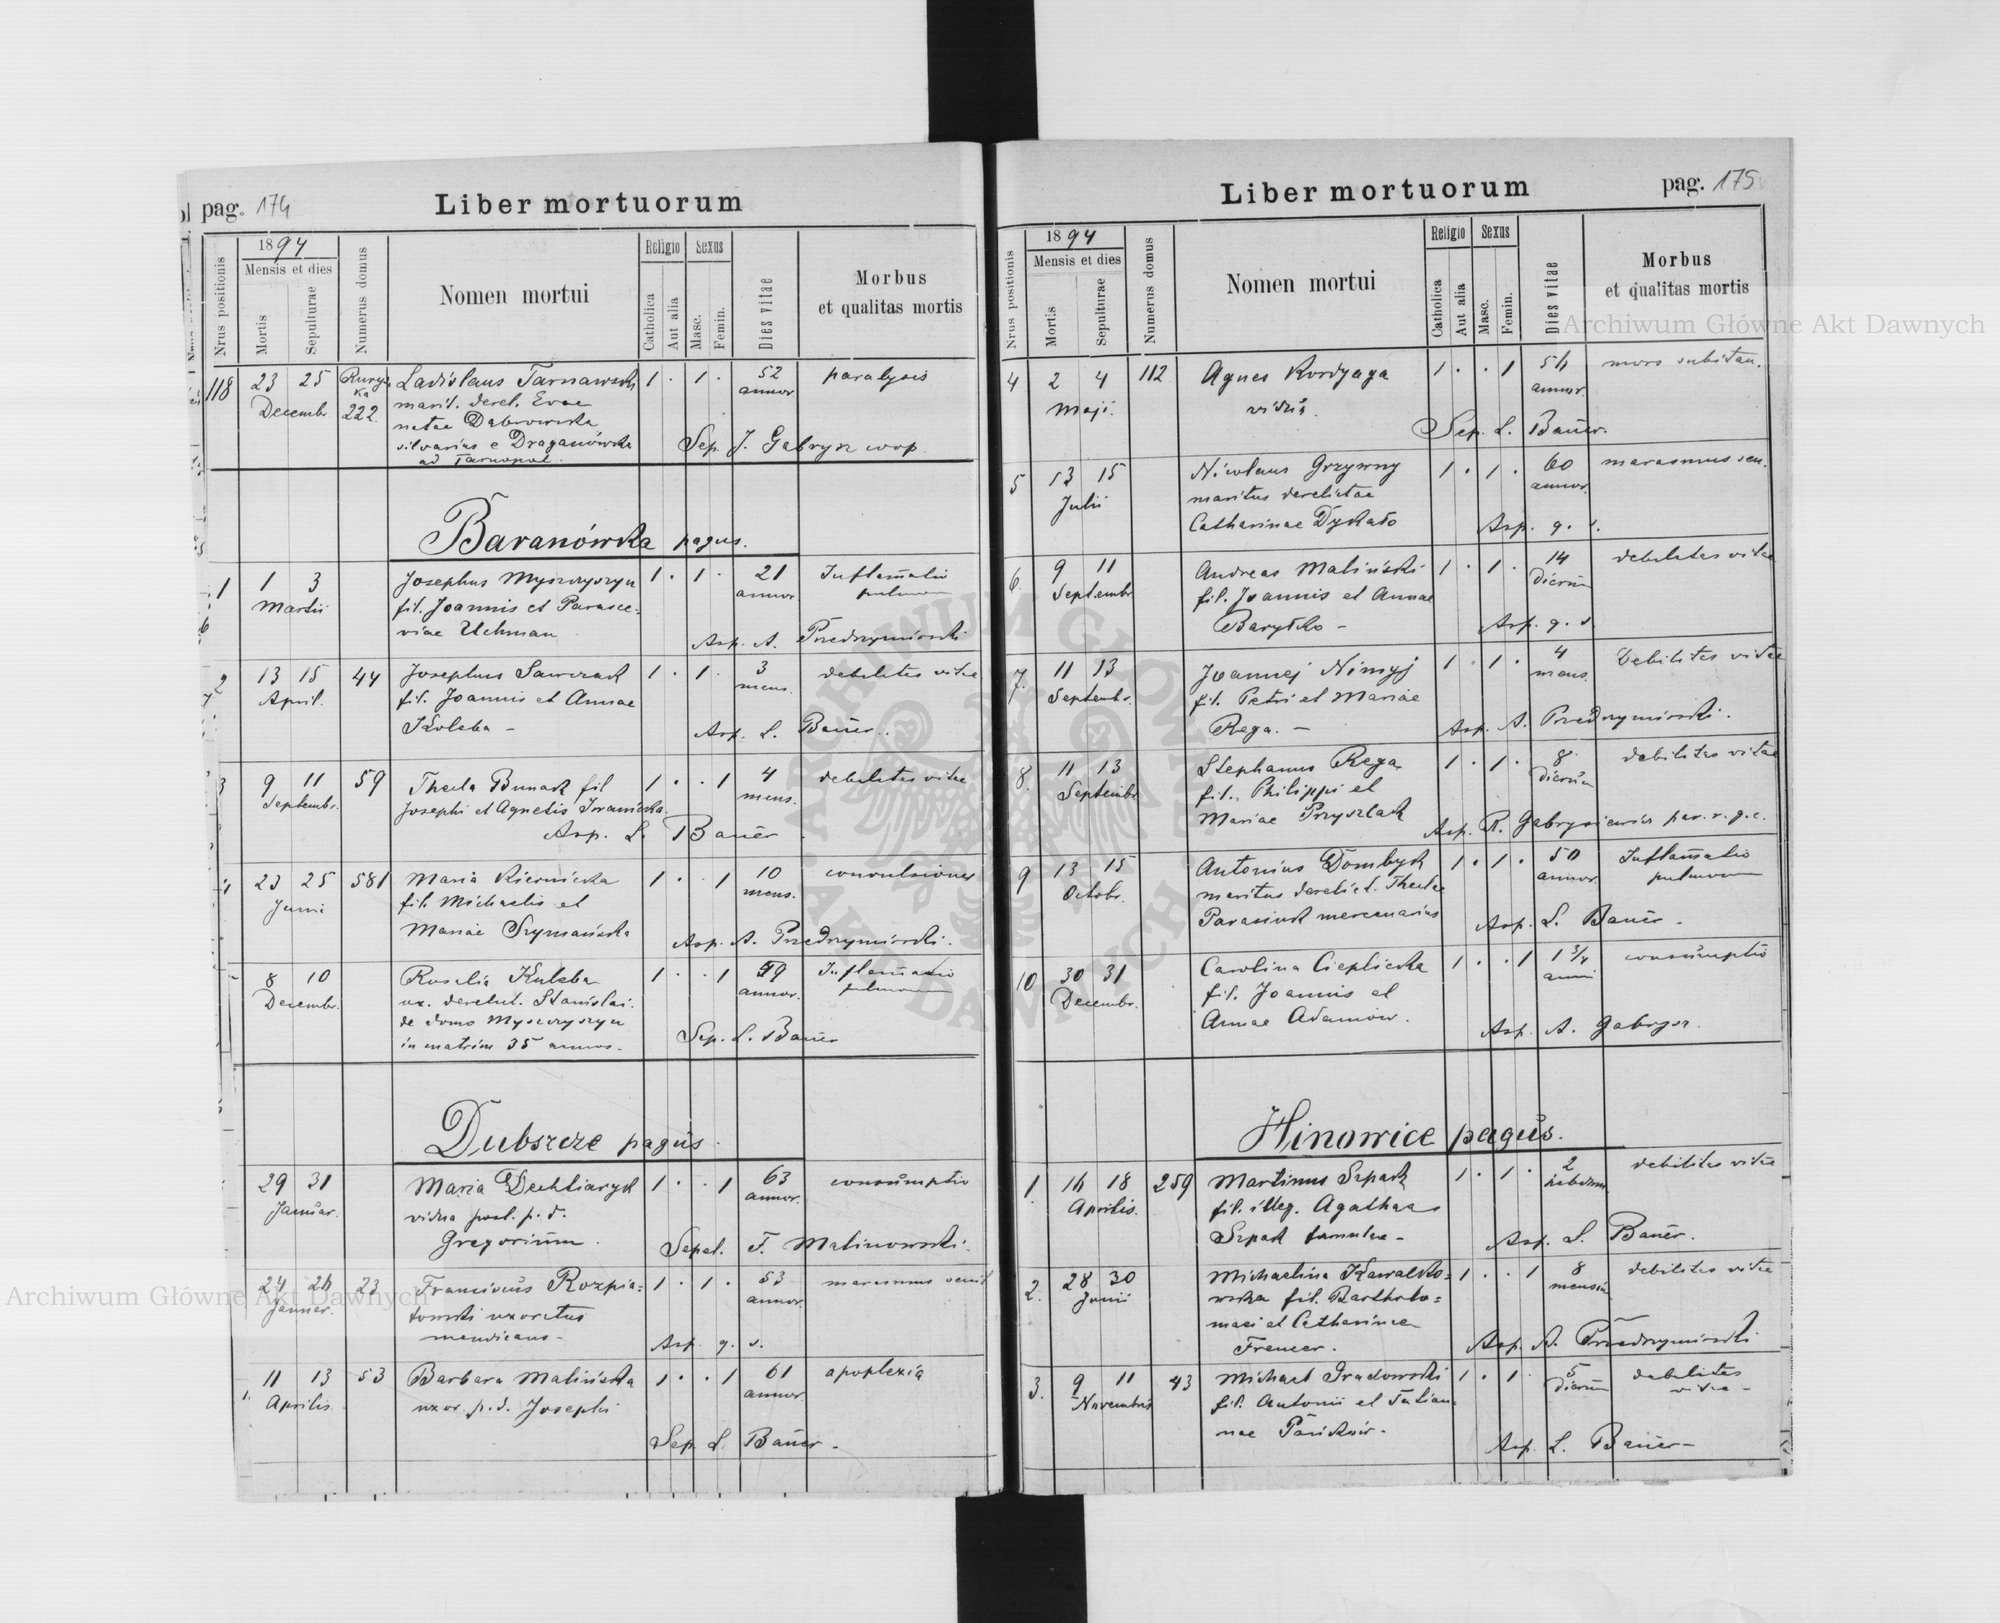 pag. 174
Liber mortuorum
Nrus positionis
1894
Mensis et dies
Mortis
Sepulturae
Numerus domus
Nomen mortui
Religio
Catholica
Aut alia
Sexus
Masc.
Femin.
Dies vitae
Morbus
et qualitas mortis
118 23 25 Ladislaus Tarnawski 1 . 1 . 52 paralysis
Decembr 222 marit. derel. Evae annor
natae Dąbrowska
silvarius e Draganówka Sep. J. Gabrysz coop.
ad Tarnopol.
Baranówka pagus.
1 1 3 Josephus Myszczyszyn 1 . 1 . 21 Inflamatio
Martii fil. Joannis et Parasce- annor pulmon
viae Uchman Asp. A. Przedrzymirski
2 13 15 44 Josephus Sawczak 1 . 1 . 3 debilitas vitae
April. fil. Joannis et Annae mens.
Koleba - Asp. L. Bauer.
3 9 11 59 Thecla Bunak fil 1 . . 1 4 debilitas vitae
Septembr. Josephi et Agnetis Iwanicka mens.
Asp. L. Bauer
4 23 25 581 Maria Kiernicka 1 . . 1 10 convulsiones
Junii fil. Michaelis et mens.
Mariae Szymańska Asp. A. Przedrzymirski.
8 10 Rosalia Kuleba 1 . . 1 59 Inflamatio
Decembr. ux. derelict. Stanislai annor. pulmon
de domo Myszczyszyn
in matrim 35 annos. Sep. L. Bauer
Dubszcze pagus.
29 31 Maria Dechtiaryk 1 . . 1 63 consumptio
Januar. vidua post. p. d. annor.
Gregorium. Sepel. F. Malinowski.
24 26 23 Franciscus Rozpia= 1 . 1 . 53 marasmus senil
Januar. towski uxoratus annor.
mendicans - Asp. q. s.
11 13 53 Barbara Malińska 1 . . 1 61 apoplexia
Aprilis. uxor. p. d. Josephi annor.
Sep. L. Bauer -
Liber mortuorum
pag. 175
Nrus positionis
1894
Mensis et dies
Mortis
Sepulturae
Numerus domus
Nomen mortui
Religio
Catholica
Aut alia
Sexus
Masc.
Femin.
Dies vitae
Morbus
et qualitas mortis
4 2 4 112 Agnes Kordyaga 1 . . 1 54 mors subitan.
Maji. vidua. annor.
Sep. L. Bauer.
5 13 15 Nicolaus Grzywny 1 . 1 . 60 marasmus sen.
Julii maritus derelictae annor.
Catharinae Dyskało Asp. q. s.
6. 9 11 Andreas Maliński 1 . 1 . 14 debilitas vitae
Septembr fil. Joannis et Annae dierum
Baryłko - Asp. q. s.
7. 11 13 Joannes Nimyj 1 . 1 . 4 Debilitas vitae
Septembr. fil. Petri et Mariae mens.
Rega. - Asp. A. Przedrzymirski.
8. 11 13 Stephanus Rega 1 . 1 . 8 debilitas vitae
Septembr fil. Philippi et dierum
Mariae Przyszlak Asp. R. Gabrysiewicz par. r. g. c.
9 13 15 Antonius Dombyk 1 . 1 . 50 Inflamatio
Octobr. maritus derelict. Theclae annor. pulmonum
Parasiuk mercenarius Asp. L. Bauer -
10 30 31 Carolina Cieplicka 1 . . 1 1 3/4 consumptio
Decembr. fil. Joannis et anni
Annae Adamów. Asp. A. Gabrysz.
Hinowice pagus.
1 16 18 259 Martinus Szpak 1 . 1 . 2 debilitas vitae
Aprilis. fil. illeg. Agathae hebdom
Szpak famulae - Asp. L. Bauer.
2. 28 30 Michaelina Kawalko= 1 . . 1 8 debilitas vitae
Junii wska fil. Bartholo= mensiu
maei et Catharinae
Fremer. Asp. A. Przedrzymirski
3. 9 11 43 Michael Gradowski 1 . 1 5 debilitas
Novembris fil. Antonii et Tatian dierum vitae -
nae Asp. L. Bauer -
Archiwum Główne Akt Dawnych
Archiwum Główne Akt Dawnych
ARCHIWUM GŁÓWNE AKT DAWNYCH